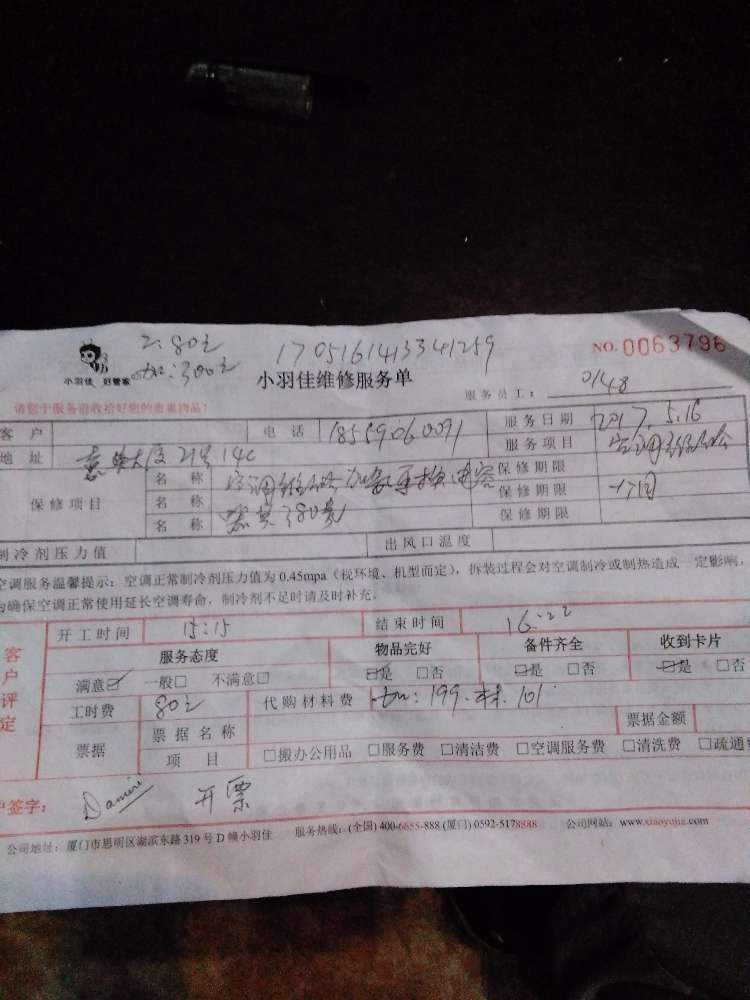 工:80元 1705161413341259 NO.0063796
加:300元
小羽佳 好管家 小羽佳维修服务单 服务员工: 0148
请您于服务前收拾好您的贵重物品!
客 户 电 话 18559060091 服务日期 2017.5.16
地 址 大厦21号14C 服务项目 空调维修
名 称 空调 电容 保修期限
保修项目 名 称 保修期限 一个月
名 称 保修期限
制冷剂压力值 出风口温度
空调服务温馨提示:空调正常制冷剂压力值为 0.45mpa(视环境、机型而定),拆装过程会对空调制冷或制热造成一定影响,
为确保空调正常使用延长空调寿命,制冷剂不足时请及时补充。
客户评定
开工时间 15:15 结束时间 16:22
服务态度 物品完好 备件齐全 收到卡片
满意☑ 一般□ 不满意□ ☑是 □否 ☑是 □否 ☑是 □否
工时费 80元 代购材料费 加:199.材.101
票据 票据名称 票据金额
项 目 □搬办公用品 □服务费 □清洁费 □空调服务费 □清洗费 □疏通
户签字: 开票
公司地址:厦门市思明区湖滨东路319号D幢小羽佳 服务热线:(全国)400-6655-888 (厦门)0592-5178888 公司网站:www.xiaoyujia.com